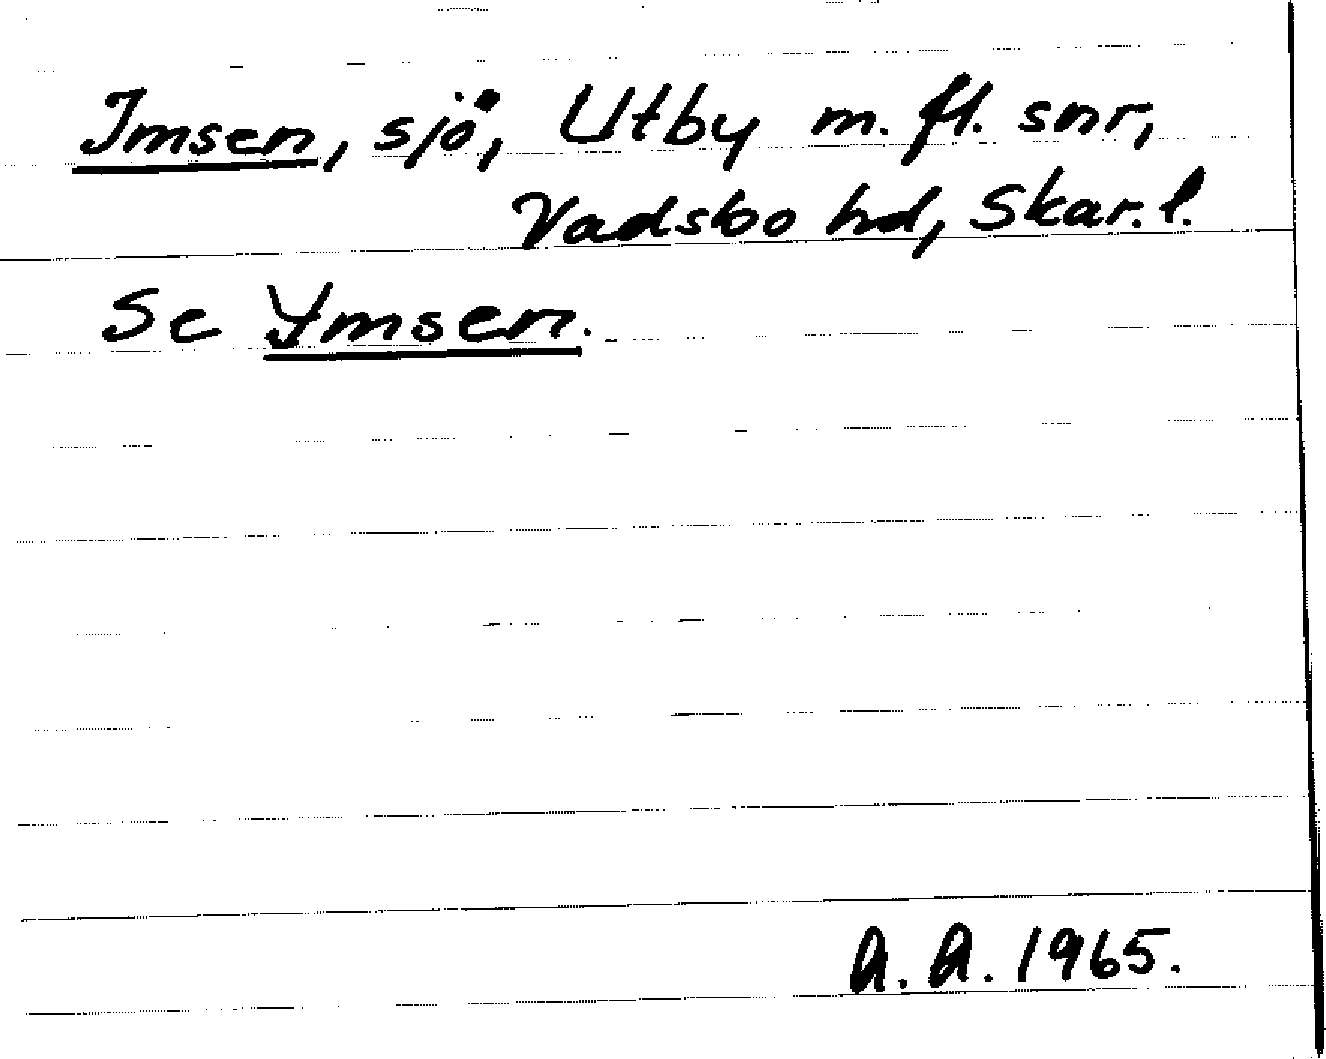 Imsen, sjö, Utby m. fl. snr,
Vadsbo hd, Skar. l.
Se Ymsen.
A. A. 1965.